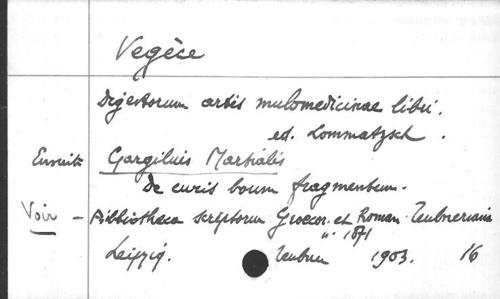 Vegèce
Digestorum artis mulomedicinae libri.
ed. Lommatzsch.
Ensuite Gargilius Martialis
De curis boum fragmentum.
Voir - Bibliotheca scriptorum Graecor. et Roman. Teubneriana
n° 1871
Leipzig. Teubner 1903. 16